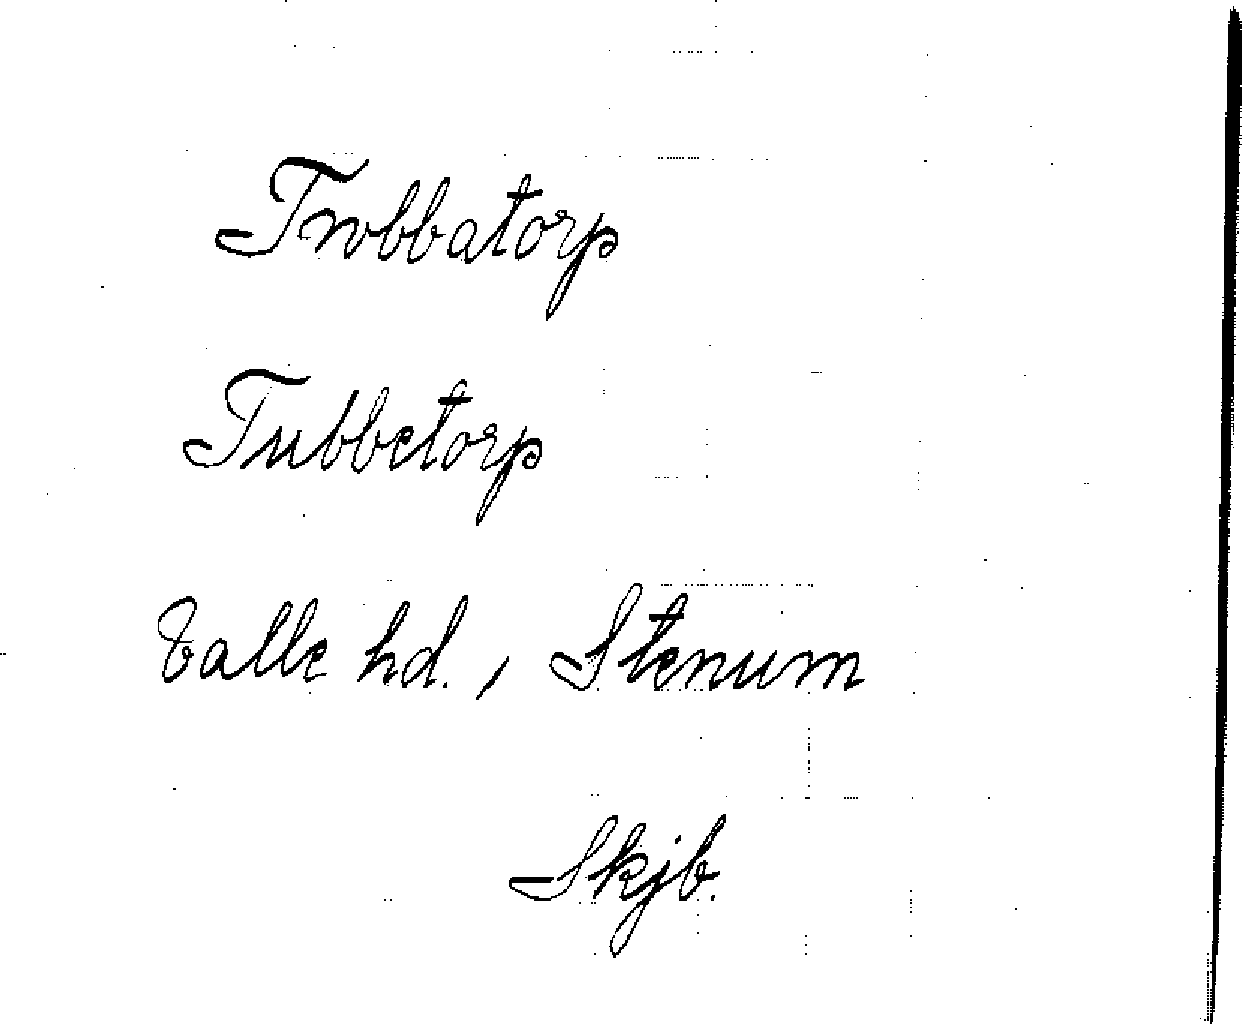 Twbbatorp
Tubbetorp
Valle hd., Stenum
Skjb.